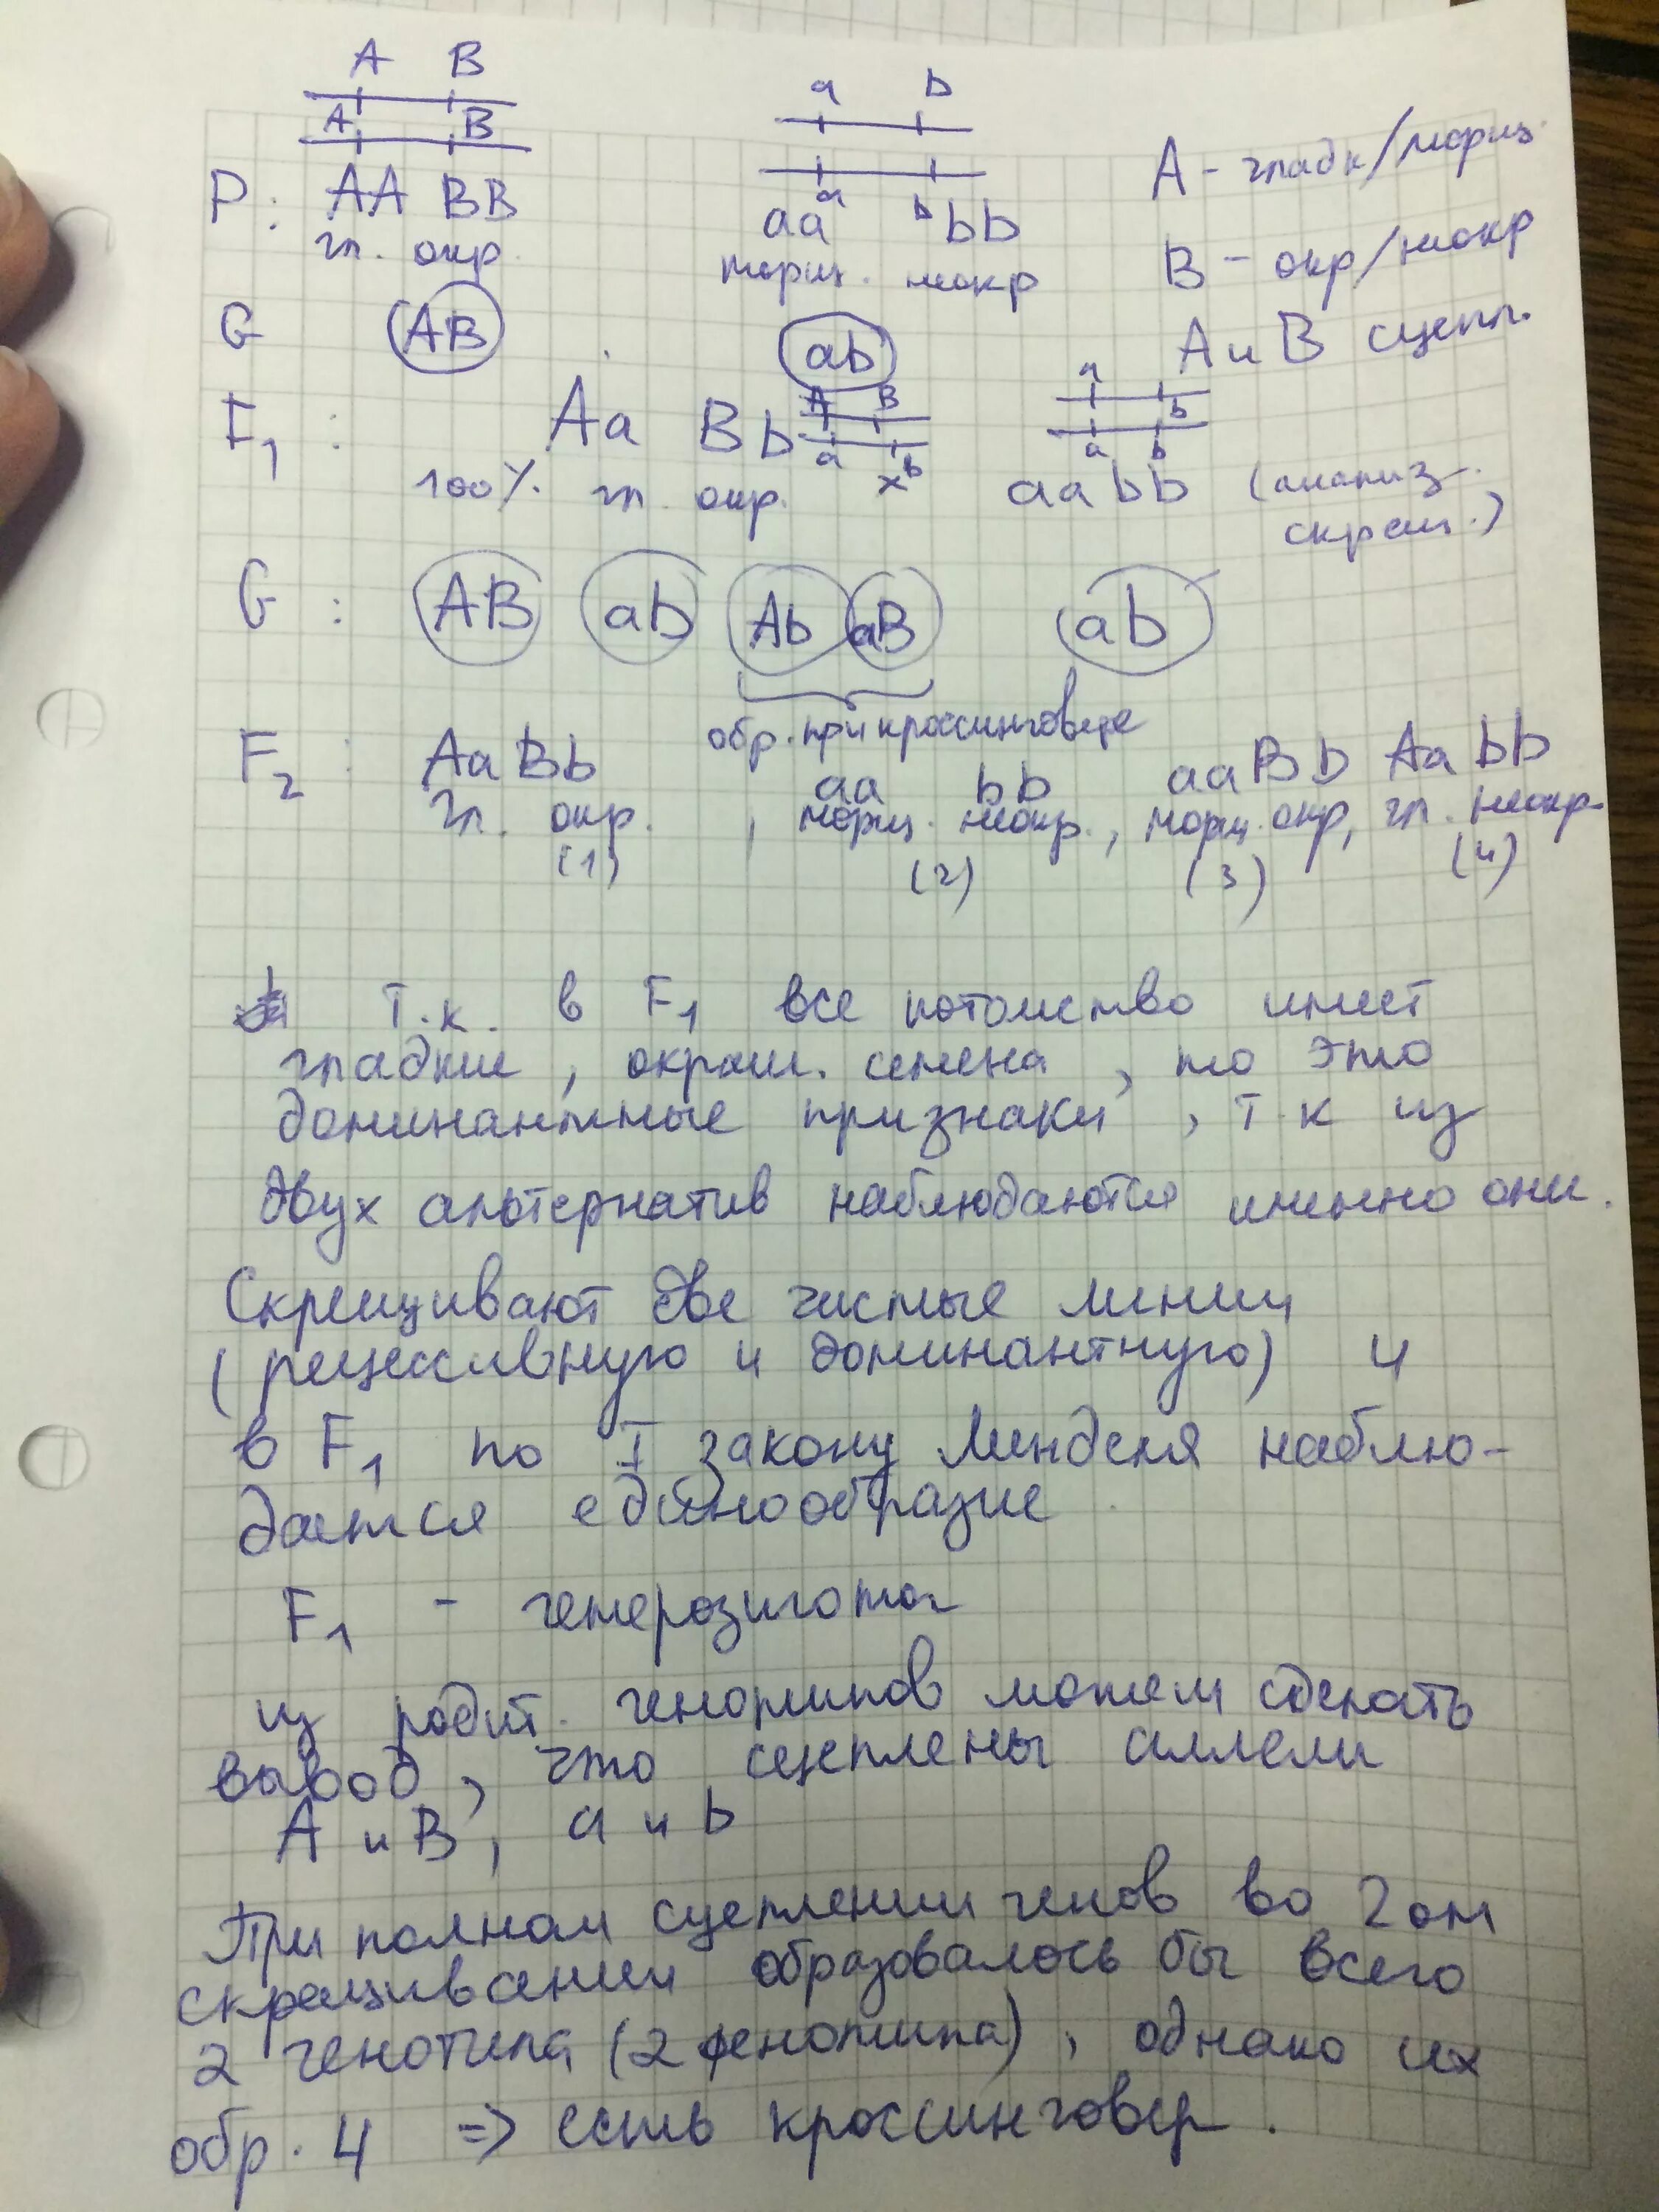 A B
a b
A B
P: AA BB
aa bb
a b
A - гладк/морщ.
гл. окр.
морщ. неокр
B - окр/неокр
G AB
ab
A и B сцепл.
F1 : Aa Bb
A B
a b
a b
a b
100% гл. окр. x aa bb (анализ. скрещ.)
G : AB ab Ab aB ab
обр. при кроссинговере
F2 : Aa Bb aa bb aaBb Aa bb
гл. окр. , морщ. неокр., морщ. окр, гл. неокр.
(1) (2) (3) (4)
Т.к. в F1 все потомство имеет
гладкие, окраш. семена, то это
доминантные признаки, т к из
двух альтернатив наблюдаются именно они.
Скрещивают две чистые линии
(рецессивную и доминантную) и
в F1 по I закону Менделя наблю-
дается единообразие
F1 - гетерозигота
из родит. генотипов можем сделать
вывод, что сцеплены аллели
A и B, a и b
При полном сцеплении генов во 2ом
скрещивании образовалось бы всего
2 генотипа (2 фенотипа), однако их
обр. 4 => есть кроссинговер.